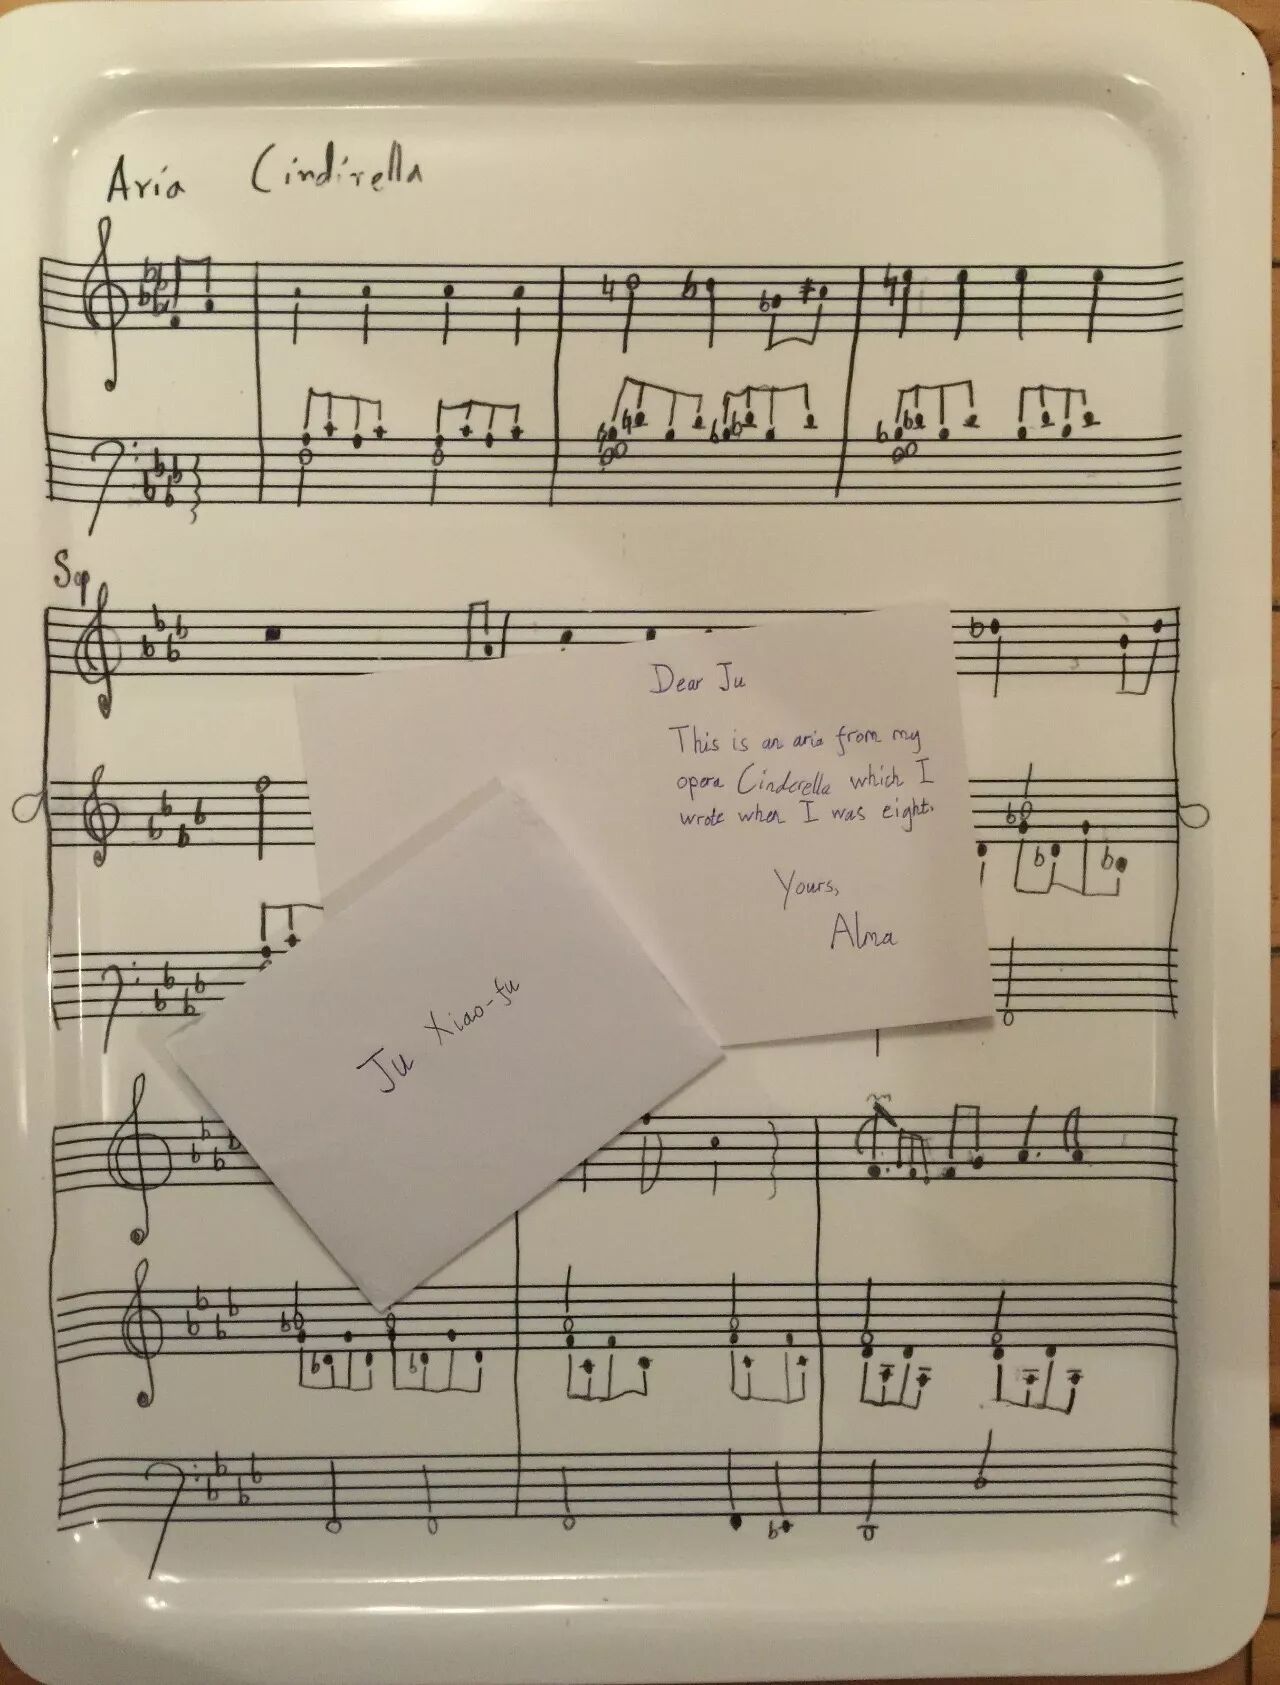 Aria Cindirella
Sop
Dear Ju
This is an aria from my
opera Cinderella which I
wrote when I was eight.
Yours,
Alma
Ju Xiao-fu